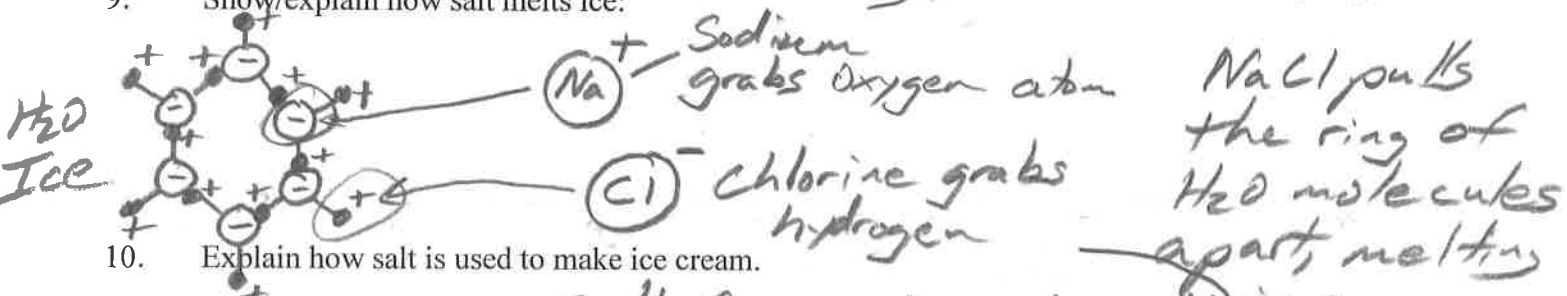 9. Show/explain how salt melts ice:
H2O
Ice
+ Sodium
Na grabs Oxygen atom
Cl - Chlorine grabs
hydrogen
NaCl pulls
the ring of
H2O molecules
apart, melting
10. Explain how salt is used to make ice cream.